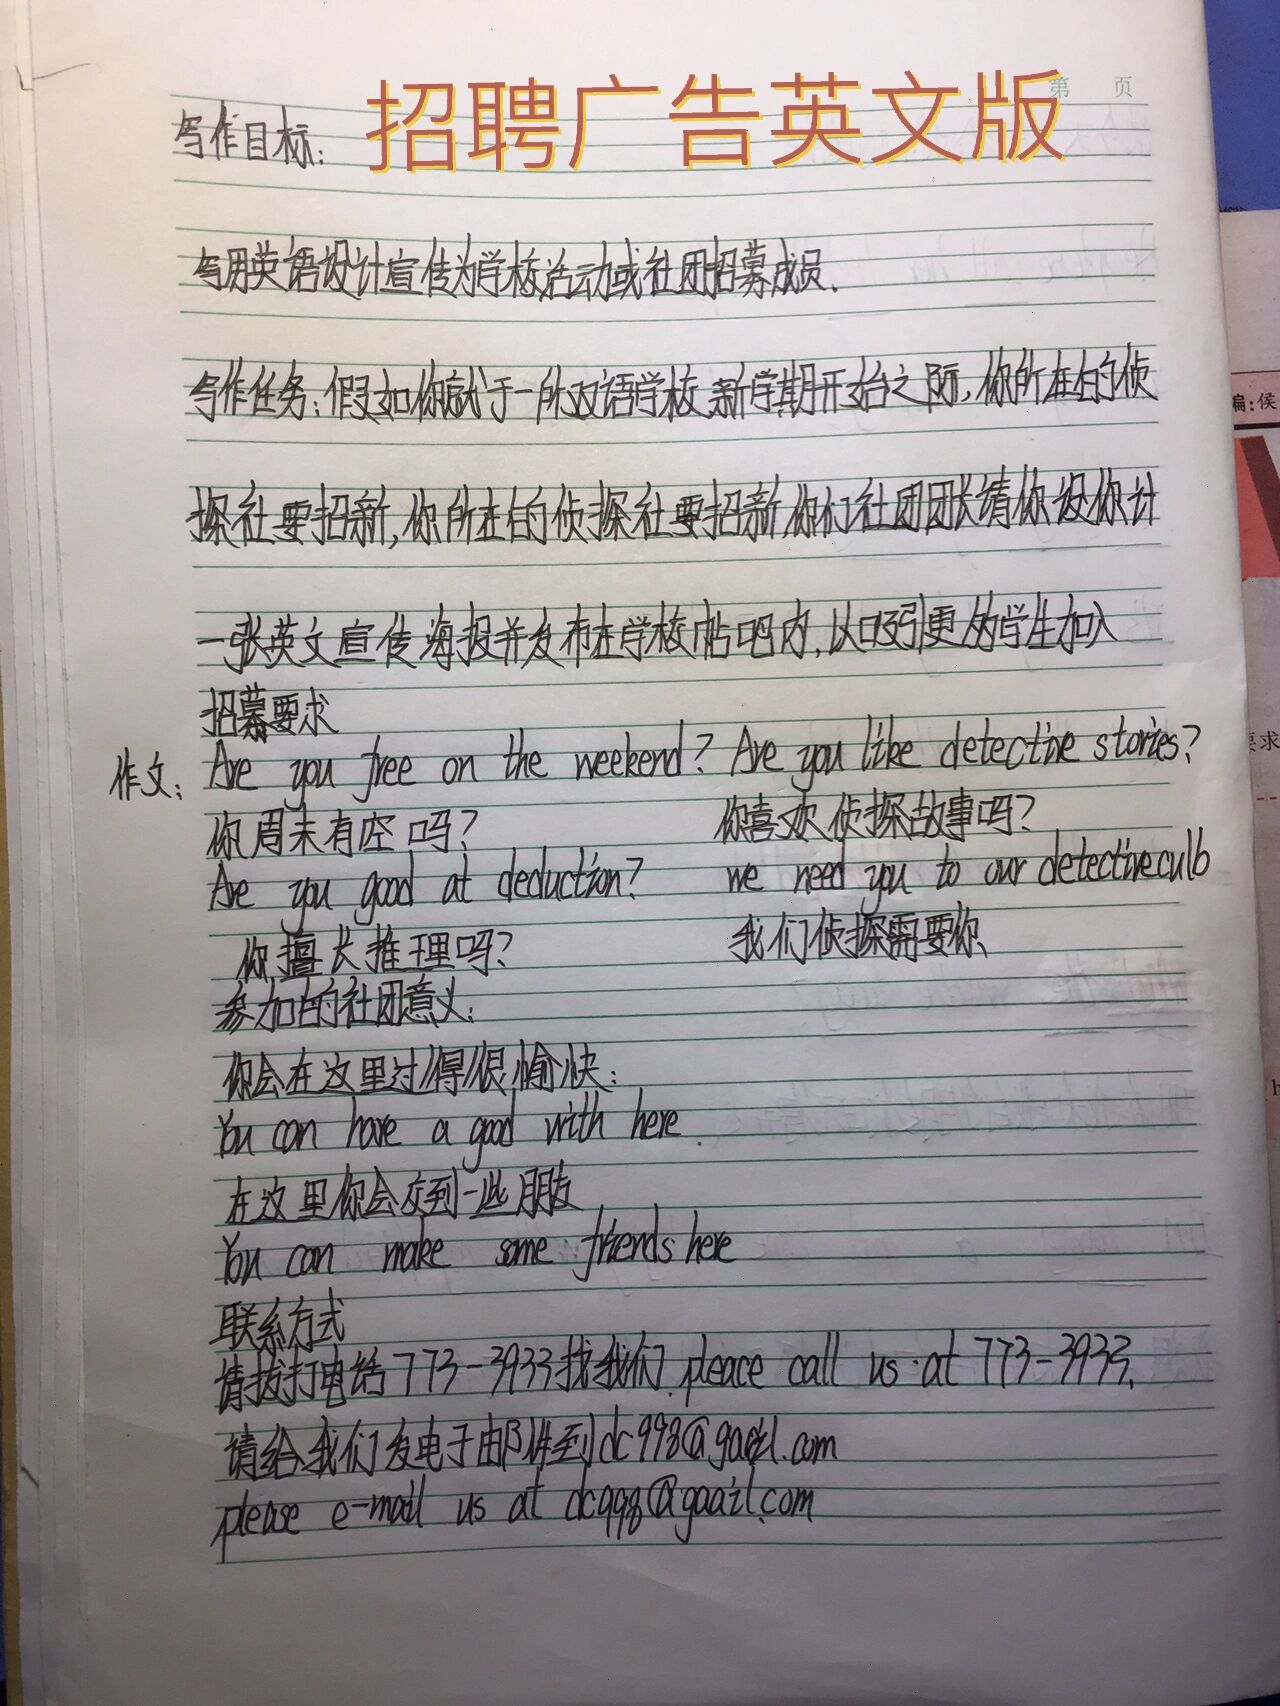 第 页
招聘广告英文版
写作目标:
写用英语设计宣传为学校活动或社团招募成员.
写作任务:假如你就于一所双语学校,新学期开始之际,你所在的侦
探社要招新,你所在的侦探社要招新,你们社团团长请你设你计
一张英文宣传海报并发布在学校帖吧内,以吸引更多的学生加入
招募要求
作文: Are you free on the weekend? Are you like detective stories?
你周末有空吗? 你喜欢侦探故事吗?
Are you good at deduction? we need you to our detectiveculb
你擅长推理吗? 我们侦探需要你、
参加的社团意义:
你会在这里过得很愉快:
You can have a good with here.
在这里你会交到一些朋友
You can make some friends here
联系方式
请拔打电话773-3933找我们.pleace call us at 773-3933.
请给我们发电子邮件到dc998@gaail.com
please e-mail us at dc998@gaail.com
编:侯
要求
h